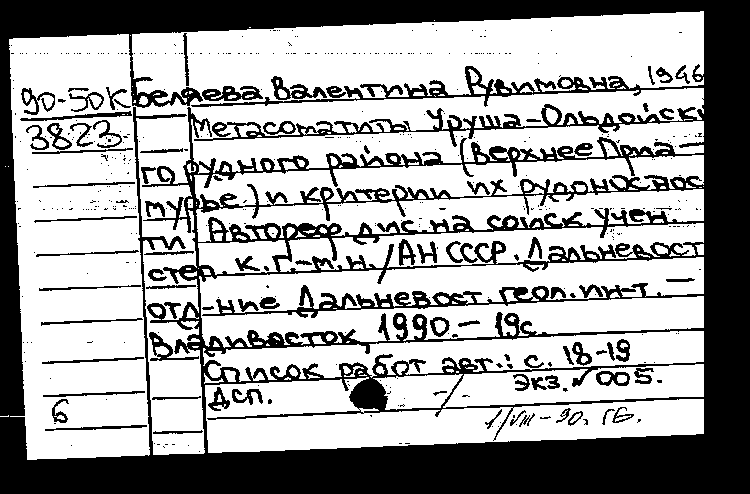 90-50К Беляева, Валентина Рувимовна, 1946
3823. Метасоматиты Уруша-Ольдойски
го рудного района (Верхнее Приа-
мурье) и критерии их рудоноснос
ти. Автореф. дис. на соиск. учен.
степ. к. г.-м. н. /АН СССР. Дальневост
отд-ние. Дальневост. геол. ин-т. -
Владивосток, 1990. - 19с.
Список работ авт.: с. 18-19
ДСП. -/. экз. № 005.
б 1/VIII-90. ГБ.